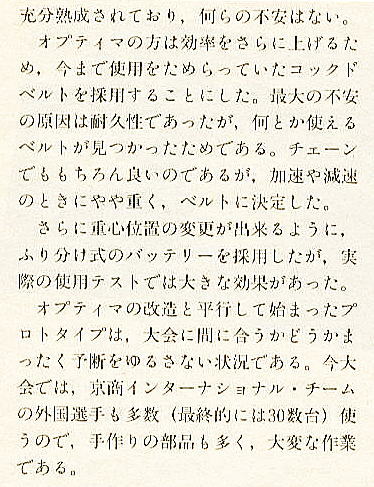 充分熟成されており，何らの不安はない。
オプティマの方は効率をさらに上げるた
め，今まで使用をためらっていたコックド
ベルトを採用することにした。最大の不安
の原因は耐久性であったが，何とか使える
ベルトが見つかったためである。チェーン
でももちろん良いのであるが，加速や減速
のときにやや重く，ベルトに決定した。
さらに重心位置の変更が出来るように，
ふり分け式のバッテリーを採用したが，実
際の使用テストでは大きな効果があった。
オプティマの改造と平行して始まったプ
ロトタイプは，大会に間に合うかどうかま
ったく予断をゆるさない状況である。今大
会では，京商インターナショナル・チーム
の外国選手も多数（最終的には30数台）使
うので，手作りの部品も多く，大変な作業
である。